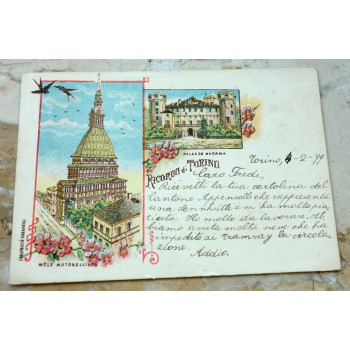 PALAZZO MADAMA
RICORDO di TORINO
MOLE ANTONELLIANA
Torino, 4-2-99
Caro Fredi,
Ricevetti la tua cartolina del
cantone Appenzell che rappresenta
una ed ha molto pia
ciuta. Ho molto da lavorare. Ab
biamo avuta molta neve che ha
impedito ai tramvay la circola
zione.
Addio.